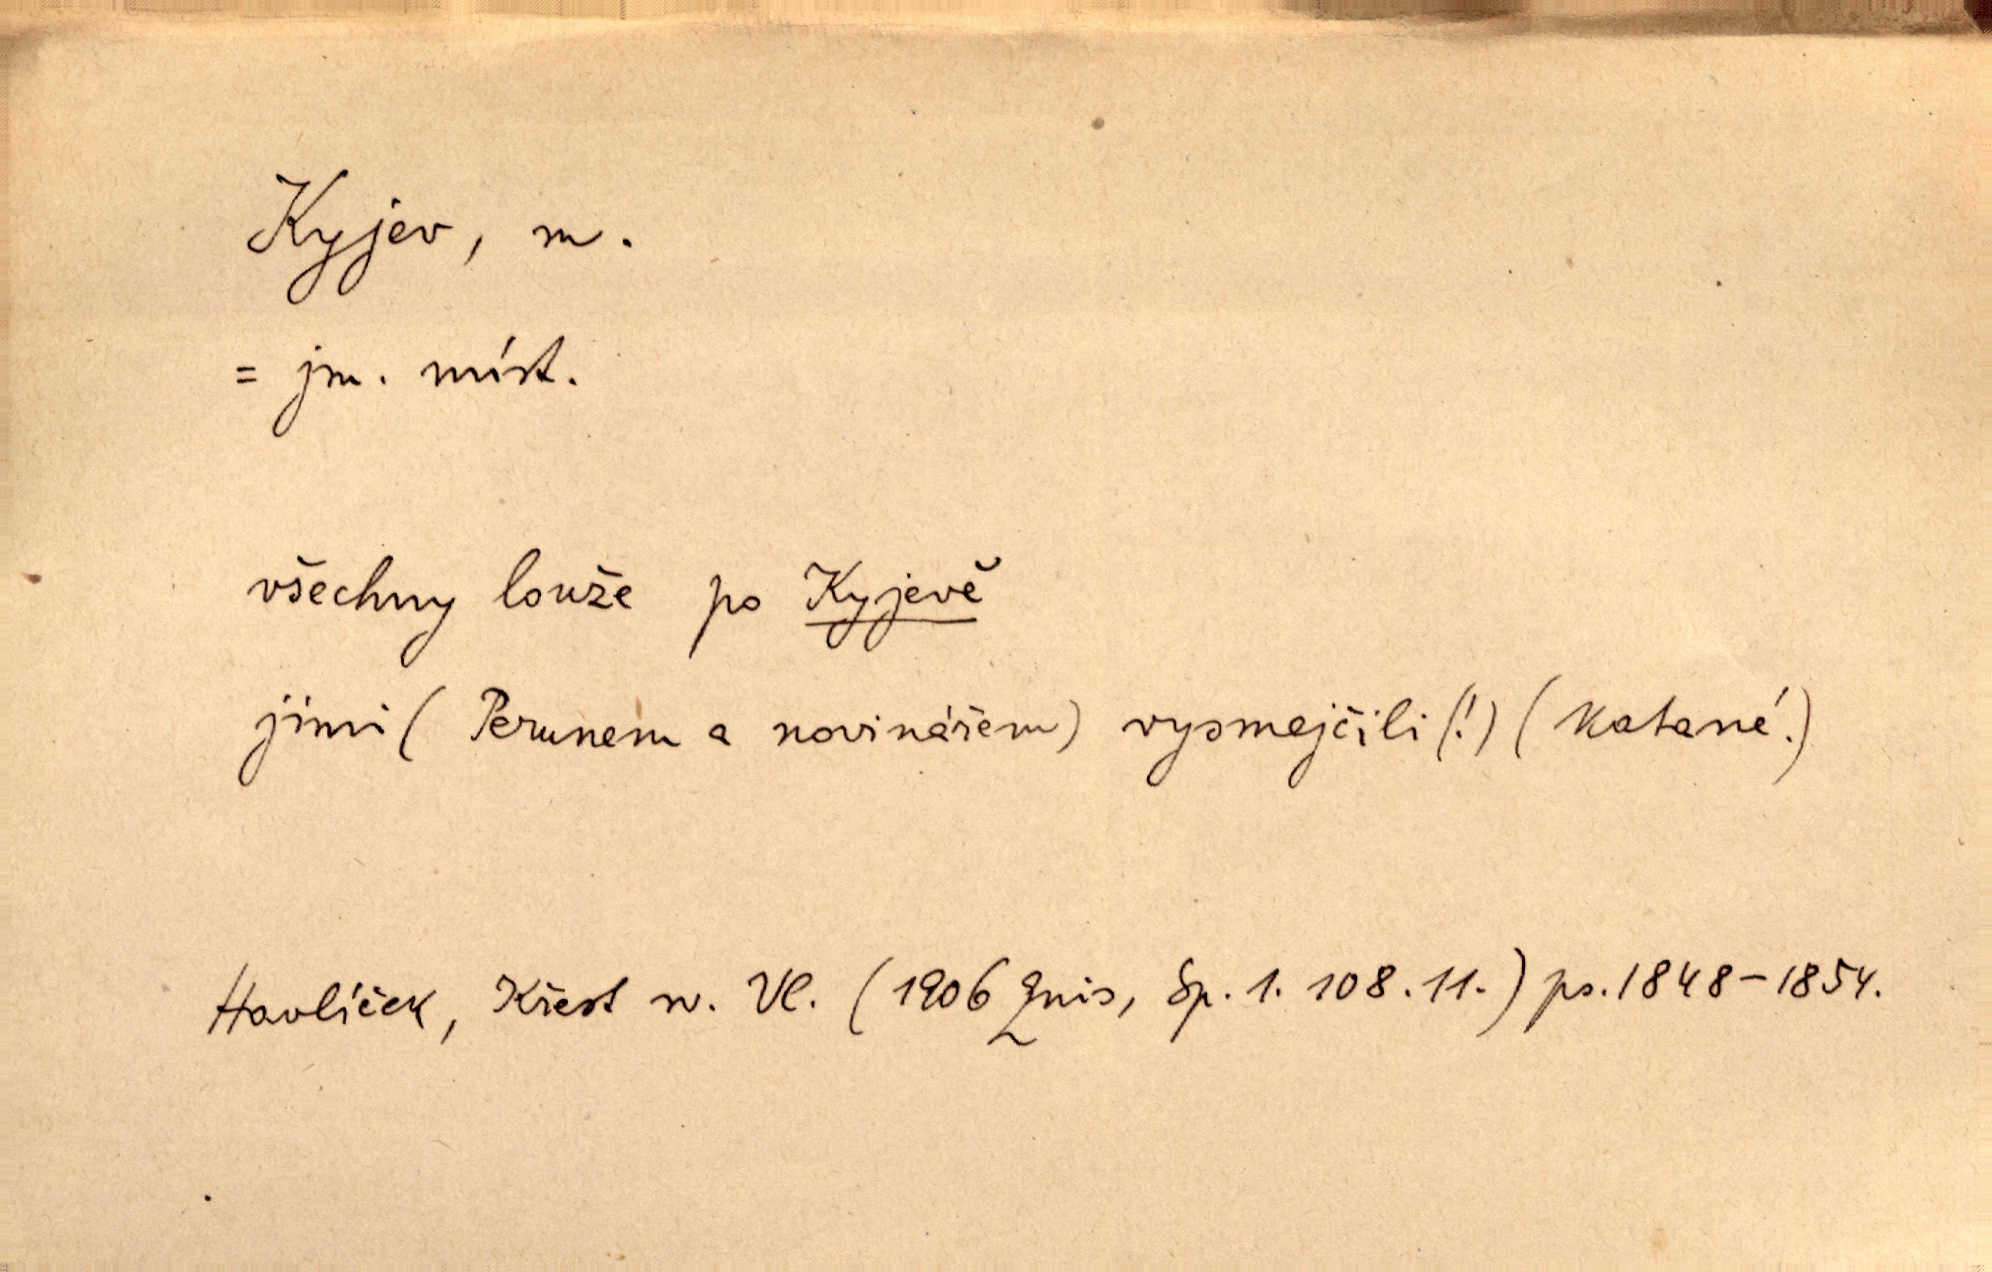 Kyjev, m.
= jm. míst.
všechny louže po Kyjevě
jimi (Perunem a novinářem) vysmejčili (!) (katané.)
Havlíček, Křest sv. Vl. (1906 Quis, Sp. 1. 108. 11.) ps. 1848-1854.